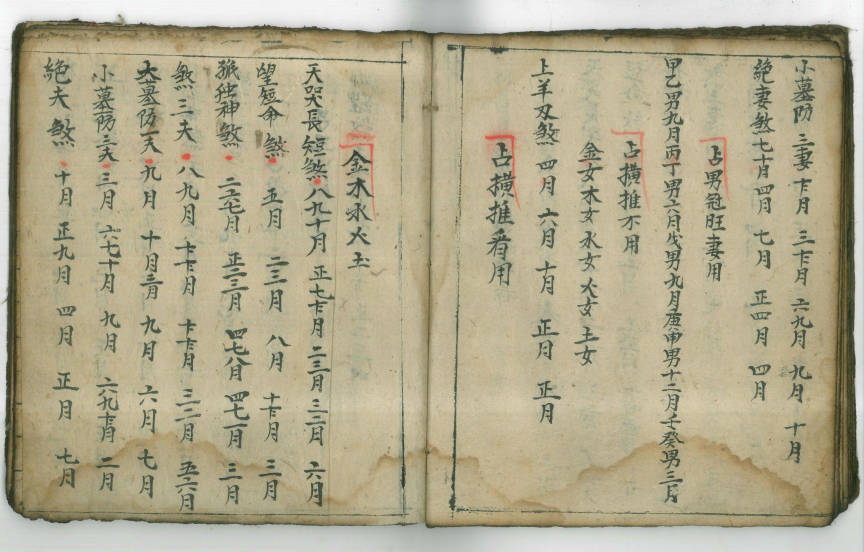 小墓防 三妻 十二月 三十二月 六九月 九月 十月
絕妻煞 七十月 四月 七月 正四月 四月
占男冠旺妻用
甲乙男九月丙丁男六月戊男九月庚申男十二月壬癸男三月
占橫推不用
金女木女水女火女土女
上羊刃煞 四月 六月 十月 正月 正月
占橫推看用
金木水火土
天哭長短煞 八九十月 正七十二月 二三月 三二月 六月
望短命煞 五月 二三月 八月 十十二月 三月
孤独神煞 二六七月 正二三月 四七八月 四七一月 三月
煞三夫 八九月 十十二月 十十二月 三二月 五六月
大墓防一夫 九月 十月三月 九月 六月 七月
小墓防三夫 三月 六七十月 九月 六九十二月 二月
絕夫煞 十月 正九月 四月 正月 七月